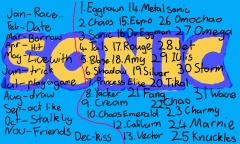 Jan-Race...
Feb-Date
Mar-Borrow
Apr-Hit
May-Live with
Jun-trick
Jul-play a game
Aug-draw
Sept-act like
Oct-Stalk by
Nov-Friends
Dec-Kiss
1. Eggrown
2. Chaos
3. Sonic
4. Tails
5. Blaze
6. Shadow
7. Princess Elise
8. Yacker
9. Cream
10. Chaos Emerald
12.
13. Vector
14. Metal Sonic
15. Espio
16. Dr. Eggman
17. Rouge
18. Amy
19. Silver
20. Tikal
21. Fang
22. Chao
23. Charmy
24. Marine
25. Knuckles
26. Omochao
27. Omega
28. Jet
29.
30. Storm
31. Wave